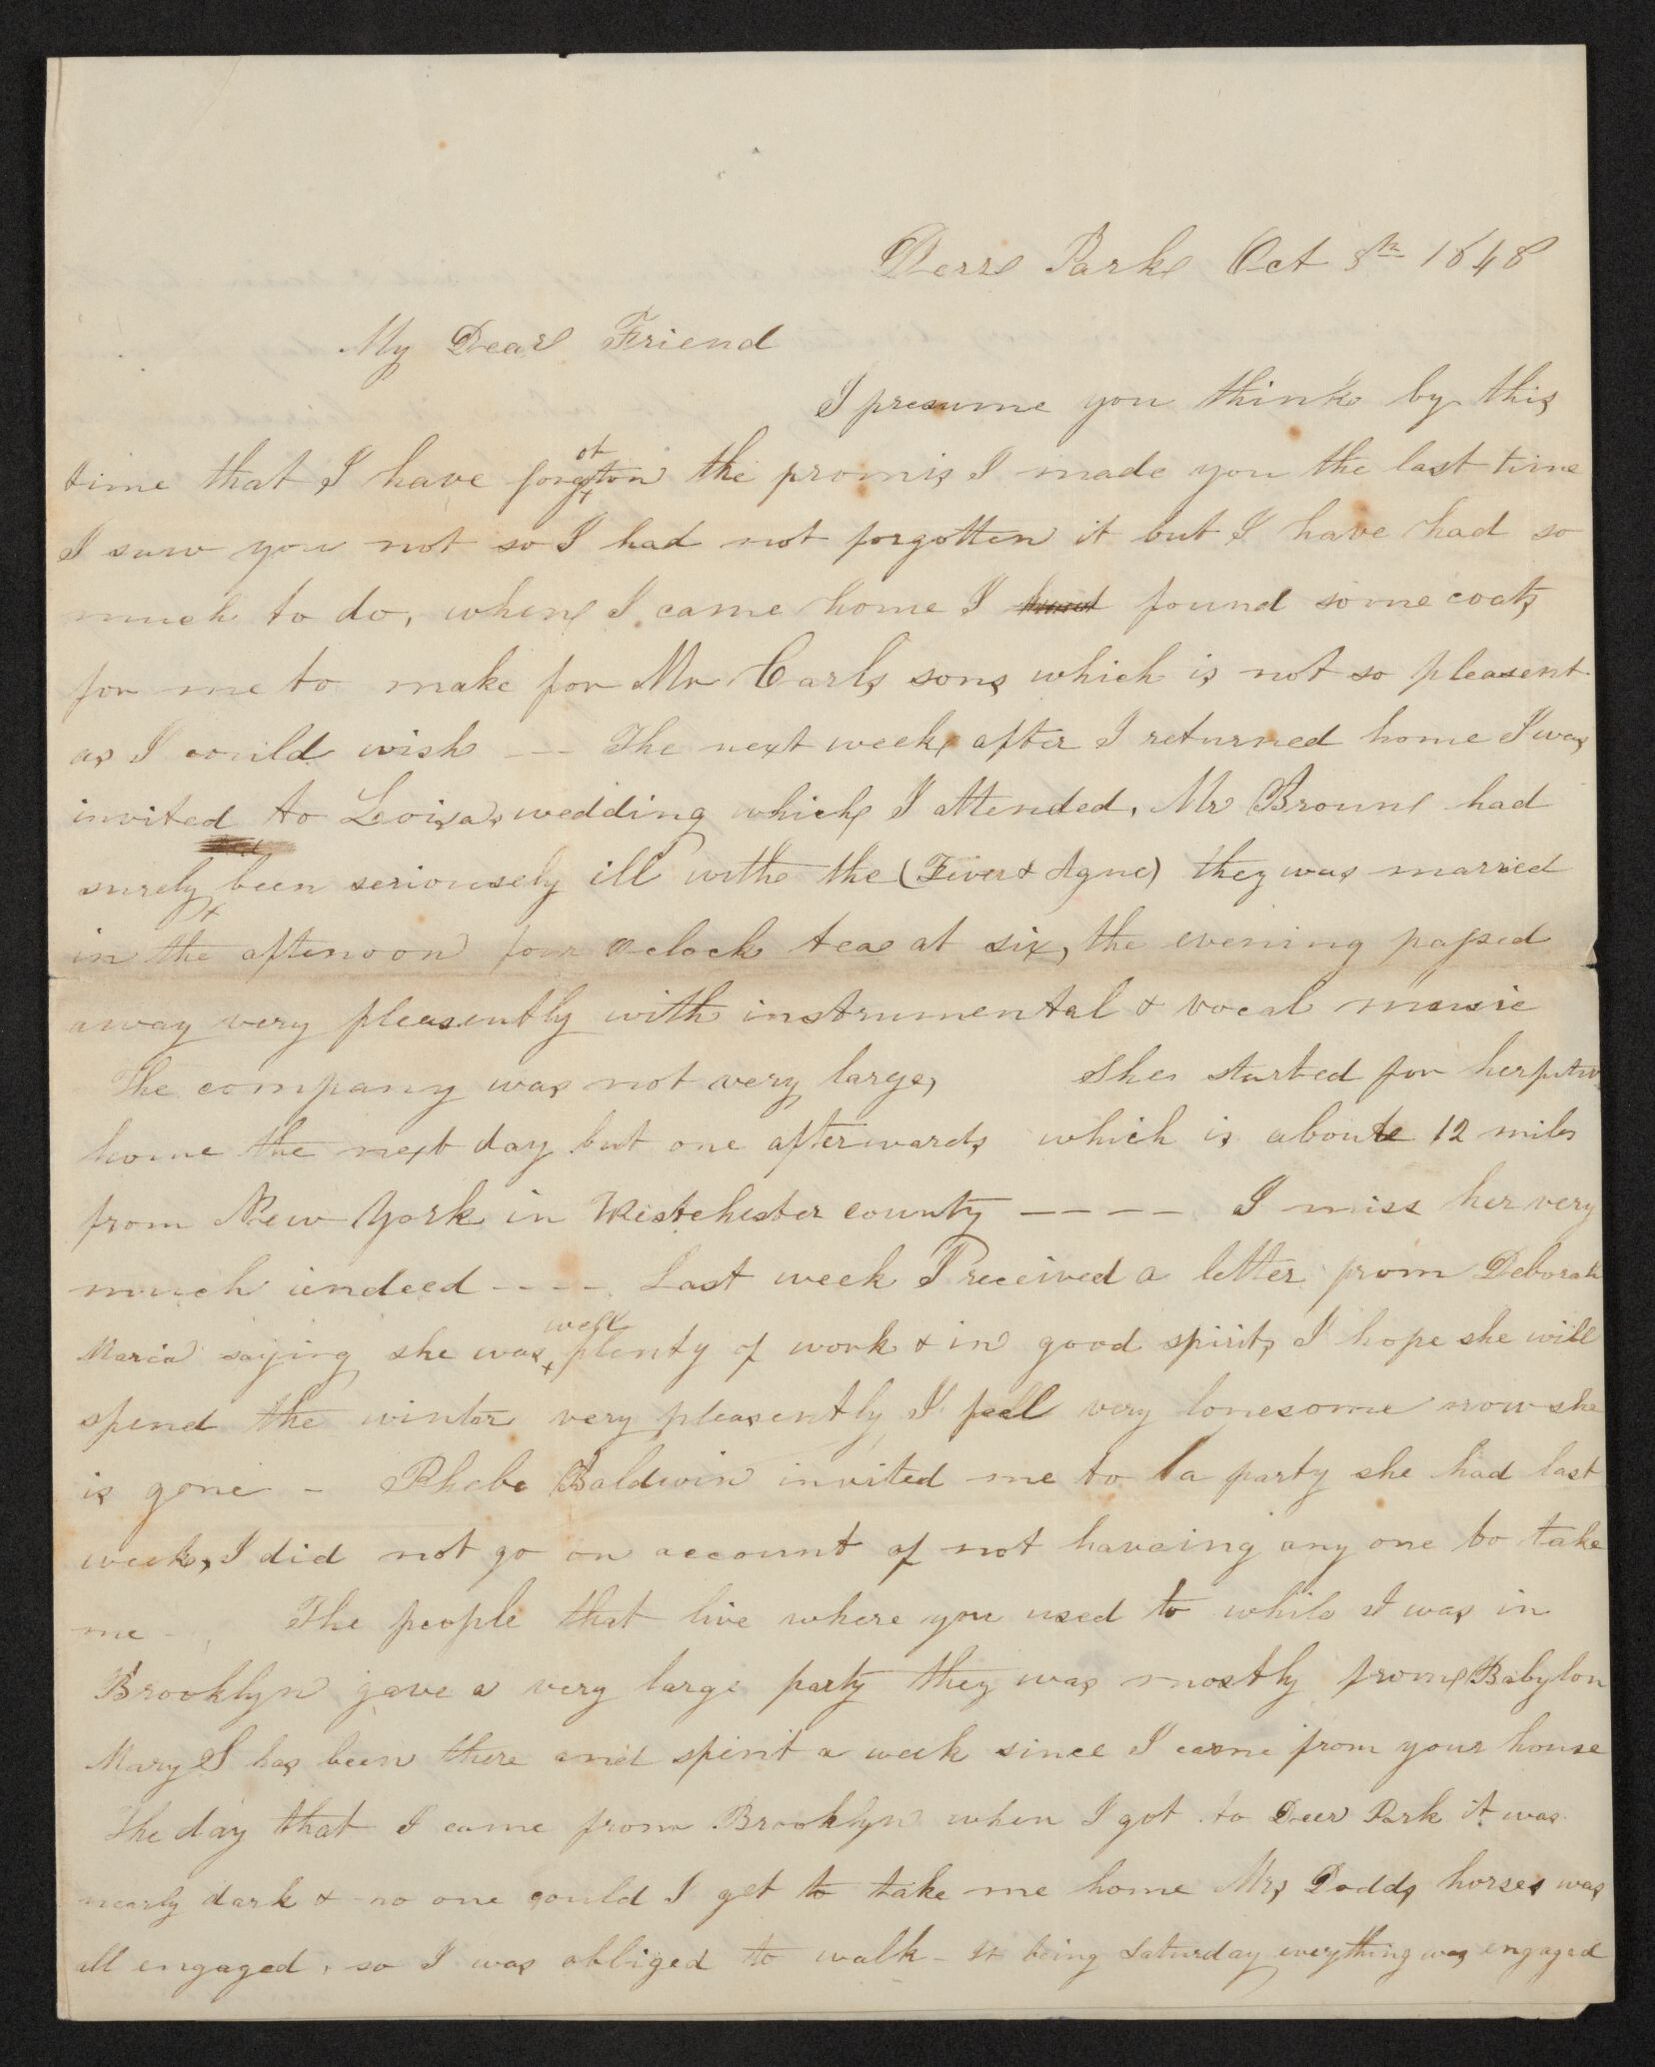 Deer Park Oct 8th 1848
My Dear Friend
I presume you think by this
time that I have forgotten the promis I made you the last time
I saw you not so I had not forgotten it but I have had so
much to do, when I came home I found some coats
for me to make for Mr Carls sons which is not so pleasent
as I could wish -- The next week after I returned home I was
invited to Loisas wedding which I attended, Mr Broun had
surely been seriousely ill withe the (Fever & Ague) they was married
in the afternoon four oclock tea at six, the evening passed
away very pleasently with instrumental & vocal music
The company was not very large, She started for her futur
home the next day but one afterwards which is aboute 12 miles
from New York in Westchester county ---- I miss her very
much indeed ---- Last week I received a letter from Deborah
Maria saying she was well plenty of work & in good spirits I hope she will
spend the winter very pleasently I feel very lonesome now she
is gone - Phebe Baldwin invited me to a party she had last
week, I did not go on account of not haveing any one to take
me - The people that live where you used to while I was in
Brooklyn gave a very large party they was mostly from Babylon
Mary S has been there and spent a week since I came from your house
The day that I came from Brooklyn when I got to Deer Park it was
nearly dark & no one could I get to take me home Mrs Dodds horses was
all engaged, so I was obliged to walk - It being Saturday everything was engaged